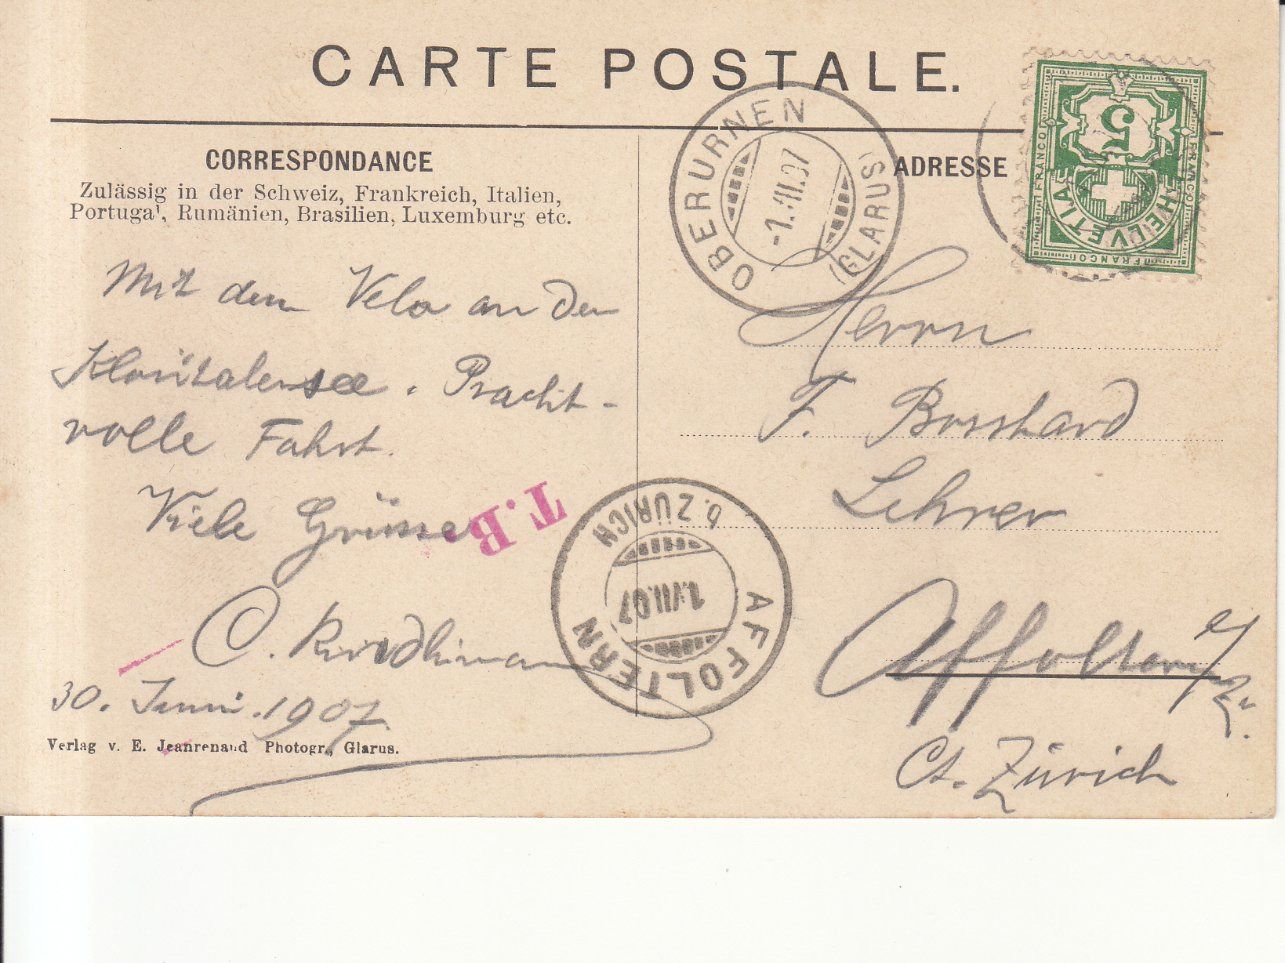 CARTE POSTALE.
CORRESPONDANCE
Zulässig in der Schweiz, Frankreich, Italien,
Portugal, Rumänien, Brasilien, Luxemburg etc.
Mit dem Velo an den
Klöntalersee. Pracht-
volle Fahrt.
Viele Grüsse
30. Juni 1907.
Verlag v. E. Jeanrenaud Photogr., Glarus.
T.B.
OBERURNEN
(GLARUS)
ADRESSE
FRANCO
FRANCO
FRANCO
HELVETIA
5
Herrn
F. Bosshard
Lehrer
Affoltern b/
Zü.
Ct. Zürich
AFFOLTERN
b. ZÜRICH
1.VII.07